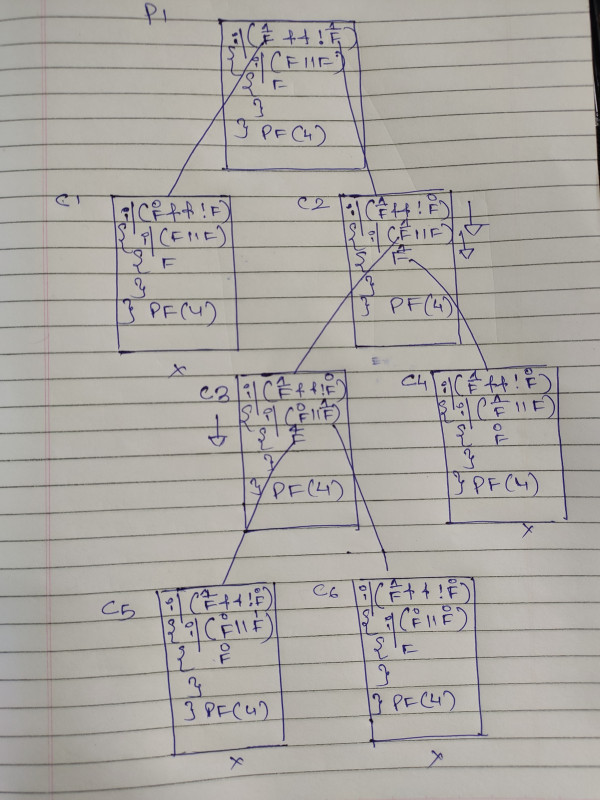 P1
if(F++!F)
1 1
{ if(F||F)
{ F
}
} PF(4)
C1
if(F++!F)
0
{ if(F||F)
{ F
}
} PF(4)
x
C2
if(F++!F)
1 0
{ if(F||F)
1
{ F
1
}
} PF(4)
C3
if(F++!F)
1 0
{ if(F||F)
0 1
{ F
1
}
} PF(4)
C4
if(F++!F)
1 0
{ if(F||F)
1
{ F
0
}
} PF(4)
x
C5
if(F++!F)
1 0
{ if(F||F)
0 1
{ F
0
}
} PF(4)
x
C6
if(F++!F)
1 0
{ if(F||F)
0 0
{ F
}
} PF(4)
x